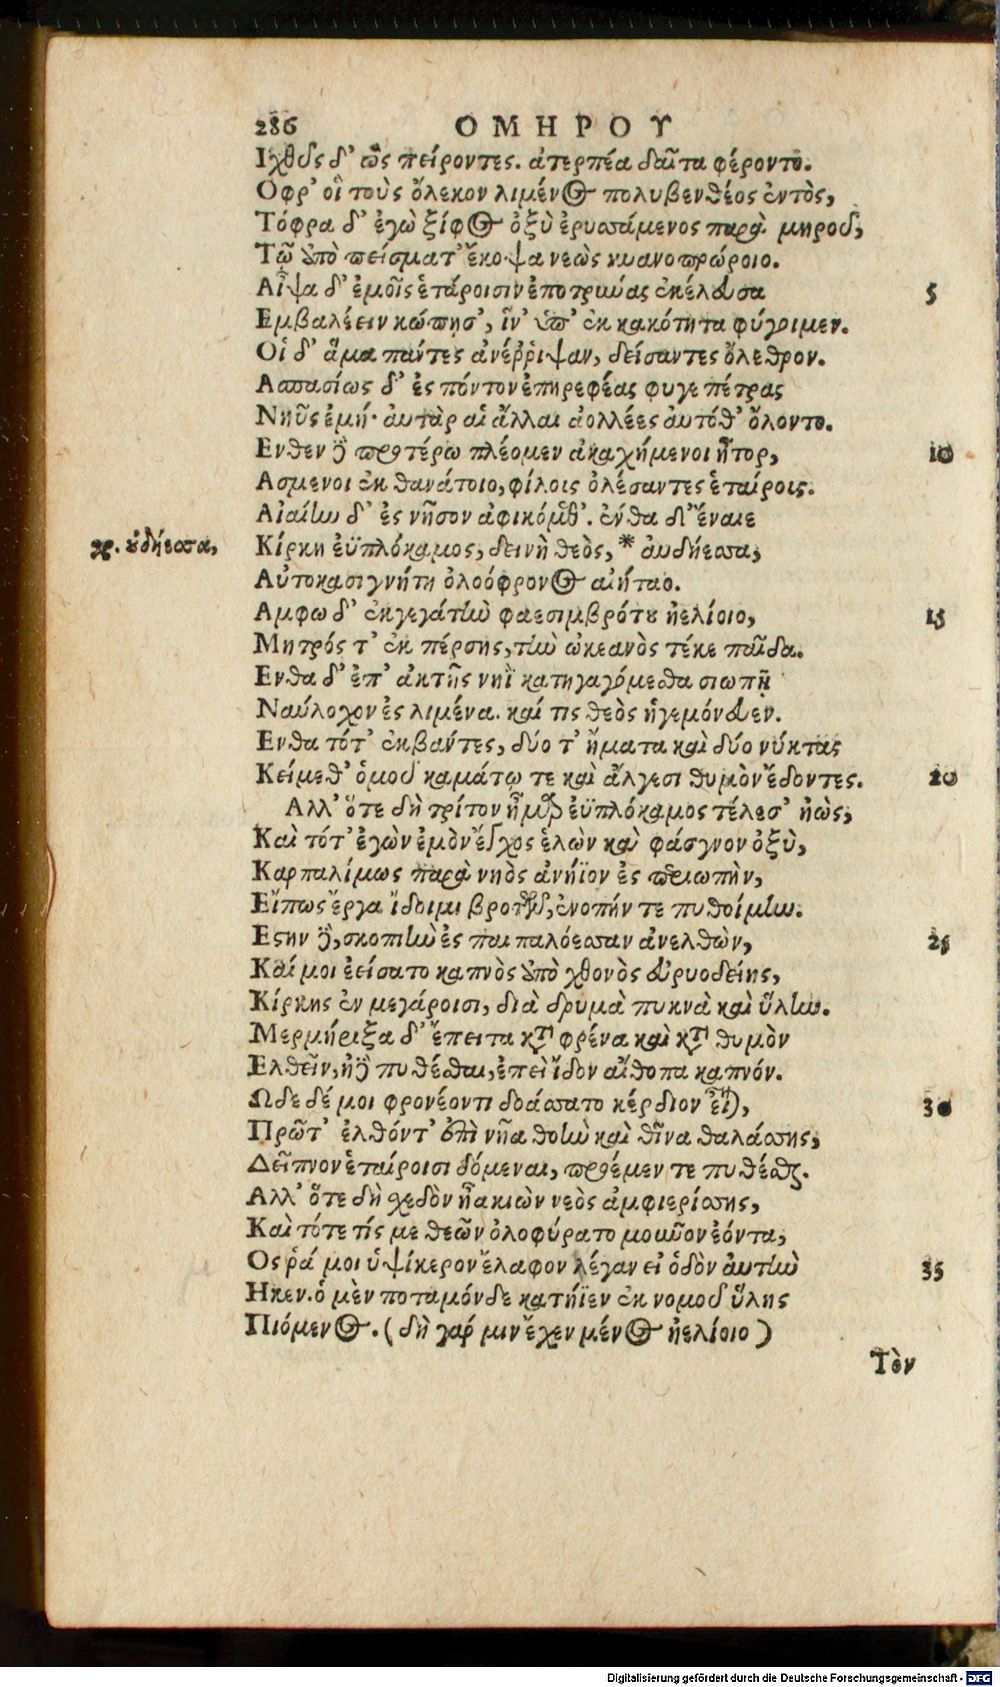 286 ΟΜΗΡΟΥ
Ιχθῦς δ' ὣς πείροντες. ἀτερπέα δαῖτα φέροντο.
Οφρ' οἳ τοὺς ὄλεκον λιμένος πολυβενθέος ἐντὸς,
Τόφρα δ' ἐγὼ ξίφος ὀξὺ ἐρυσσάμενος παρὰ μηροῦ,
Τῷ ἀπὸ πείσματ' ἔκοψα νεὼς κυανοπρώροιο.
Αἶψα δ' ἐμοῖς ἑτάροισιν ἐποτρύνας ἐκέλευσα 5
Εμβαλέειν κώπῃσ', ἵν' ὑπ' ἐκ κακότητα φύγοιμεν.
Οἱ δ' ἅμα πάντες ἀνέῤῥιψαν, δείσαντες ὄλεθρον.
Ασπασίως δ' ἐς πόντον ἐπηρεφέας φυγε πέτρας
Νηῦς ἐμή· ἀυτὰρ αἱ ἄλλαι ἀολλέες ἀυτόθ' ὄλοντο.
Ενθεν δὲ προτέρω πλέομεν ἀκαχήμενοι ἦτορ, 10
Ασμενοι ἐκ θανάτοιο, φίλοις ὀλέσαντες ἑταίροις.
Αἰαίην δ' ἐς νῆσον ἀφικόμεθ'. ἐνθα δ' ἔναιε
γρ. οὐδήεσσα, Κίρκη ἐϋπλόκαμος, δεινὴ θεὸς, * ἀυδήεσσα,
Αὐτοκασιγνήτη ὀλοόφρονος αἰήταο.
Αμφω δ' ἐκγεγάτην φαεσιμβρότου ἠελίοιο, 15
Μητρός τ' ἐκ πέρσης, τὴν ὠκεανὸς τέκε παῖδα.
Ενθα δ' ἐπ' ἀκτῆς νηῒ κατηγαγόμεσθα σιωπῇ
Ναύλοχον ἐς λιμένα. καί τις θεὸς ἡγεμόνευεν.
Ενθα τότ' ἐκβάντες, δύο τ' ἤματα καὶ δύο νύκτας
Κείμεθ' ὁμοῦ καμάτῳ τε καὶ ἄλγεσι θυμὸν ἔδοντες. 20
Αλλ' ὅτε δὴ τρίτον ἦμαρ ἐϋπλόκαμος τέλεσ' ἠὼς,
Καὶ τότ' ἐγὼν ἐμὸν ἔγχος ἑλὼν καὶ φάσγνον ὀξὺ,
Καρπαλίμως παρὰ νηὸς ἀνήϊον ἐς περιωπὴν,
Εἴπως ἔργα ἴδοιμι βροτῶν, ἐνοπήν τε πυθοίμην.
Εστην δὲ, σκοπιὴν ἐς παιπαλόεσσαν ἀνελθὼν, 25
Καί μοι ἐείσατο καπνὸς ἀπὸ χθονὸς εὐρυοδείης,
Κίρκης ἐν μεγάροισι, διὰ δρυμὰ πυκνὰ καὶ ὕλην.
Μερμήριξα δ' ἔπειτα κατὰ φρένα καὶ κατὰ θυμὸν
Ελθεῖν, ἠδὲ πυθέσθαι, ἐπεὶ ἴδον αἴθοπα καπνόν.
Ωδε δέ μοι φρονέοντι δοάσσατο κέρδιον εἶναι, 30
Πρῶτ' ἐλθόντ' ἐπὶ νῆα θοὴν καὶ θῖνα θαλάσσης,
Δεῖπνον ἑταίροισι δόμεναι, προέμεν τε πυθέσθαι.
Αλλ' ὅτε δὴ σχεδὸν ἦα κιὼν νεὸς ἀμφιερίσσης,
Καὶ τότε τίς με θεῶν ὀλοφύρατο μοῦνον ἐόντα,
Ος ῥά μοι ὑψίκερον ἔλαφον μέγαν εἰ ὁδὸν ἀυτὴν 35
Ηκεν. ὁ μὲν ποταμόνδε κατήϊεν ἐκ νομοῦ ὕλης
Πιόμενος. (δὴ γάρ μιν ἔχεν μένος ἠελίοιο)
Τὸν
Digitalisierung gefördert durch die Deutsche Forschungsgemeinschaft - DFG